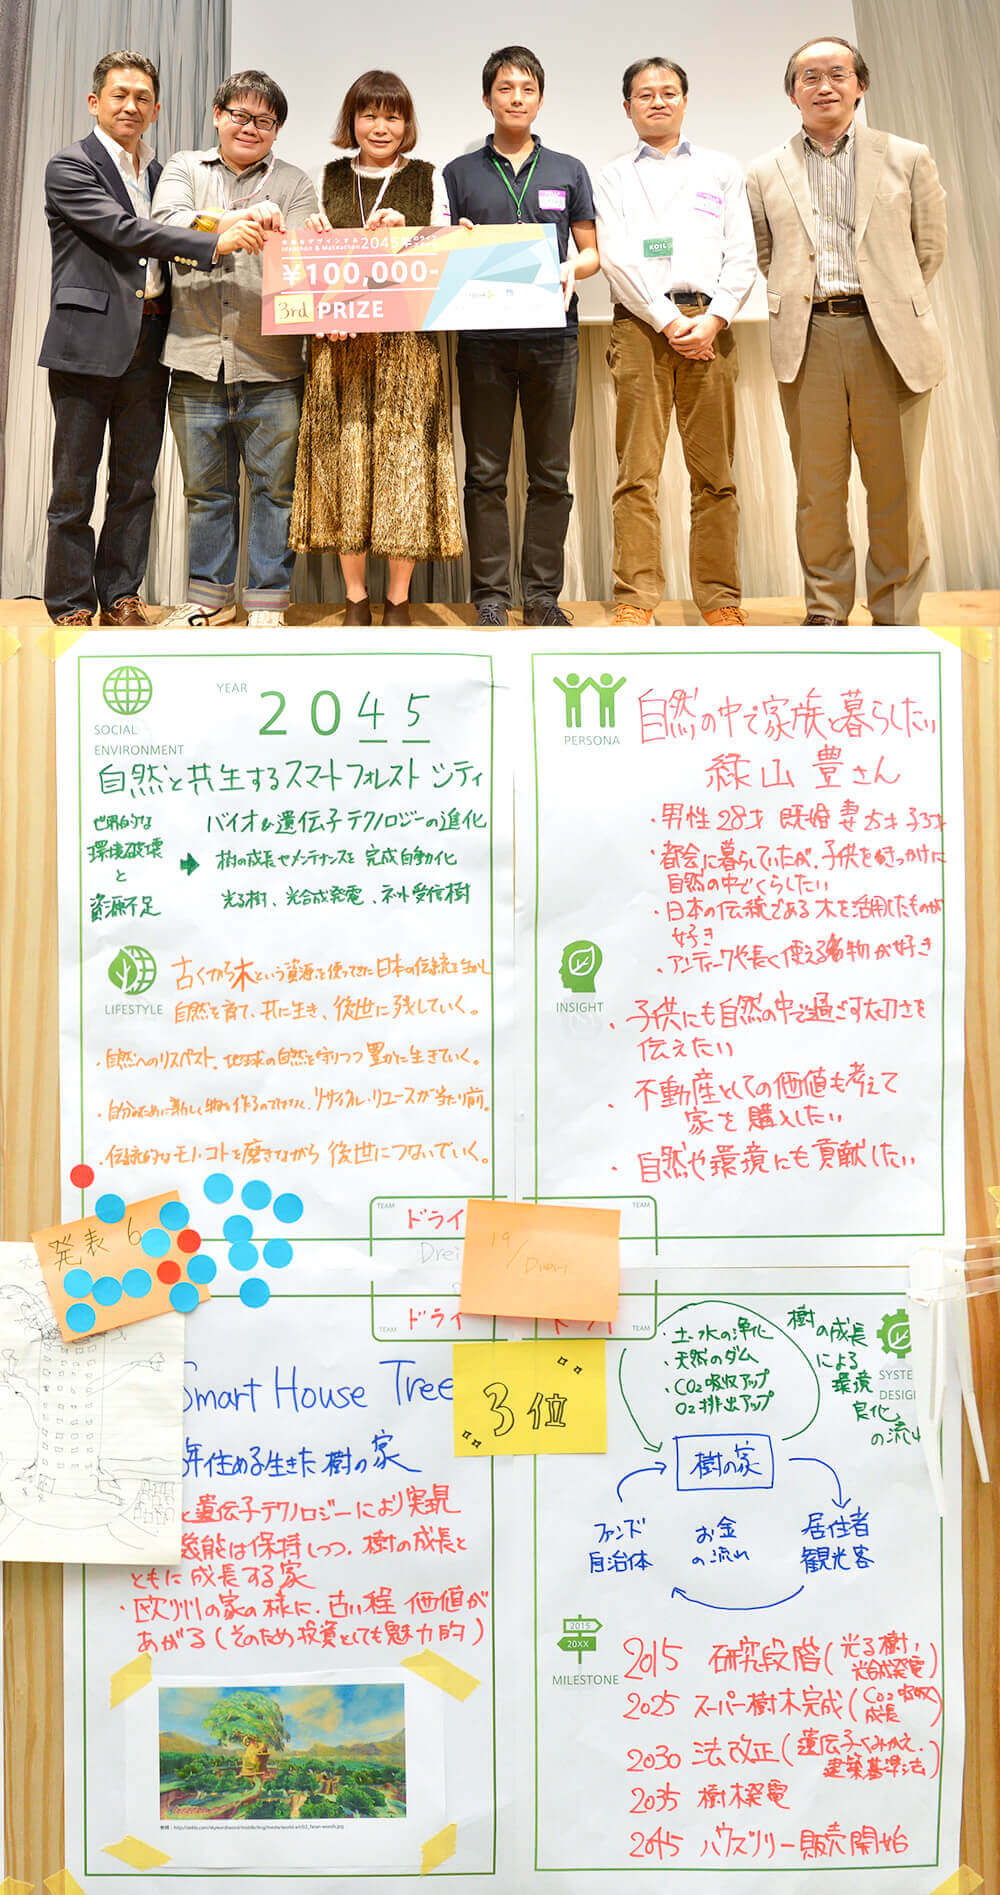 未来をデザインする
Ideathon & Makeathon 2045年
¥100,000-
3rd PRIZE
KOIL
SOCIAL
ENVIRONMENT
YEAR
2045
自然と共生するスマートフォレスト シティ
世界的な
環境破壊
と
資源不足
バイオ&遺伝子テクノロジーの進化
樹の成長やメンテナンスを完成自動化
光る樹、光合成発電、ネット受信樹
LIFESTYLE
古くから木という資源を使ってきた日本の伝統を生かし
自然を育て、共に生き、後世に残していく。
・自然へのリスペクト。地球の自然を守りつつ豊かに生きていく。
・自分のために新しく物を作るのではなく、リサイクル・リユースが当たり前。
・伝統的なモノ・コトを磨きながら後世につないでいく。
PERSONA
自然の中で家族と暮らしたい
緑山 豊さん
・男性28才 既婚 妻 子3才
・都会に暮らしていたが、子供をきっかけに
自然の中でくらしたい
・日本の伝統である木を活用したものが
好き
・アンティークや長く使える物が好き
INSIGHT
・子供にも自然の中で過ごす大切さを
伝えたい
・不動産としての価値も考えて
家を購入したい
・自然や環境にも貢献したい
TEAM
ドライ
Drei
TEAM
19/Drei
発表 6
TEAM
ドライ
TEAM
3位
Smart House Tree
年住める生きた樹の家
と遺伝子テクノロジーにより実現
機能は保持しつつ、樹の成長と
ともに成長する家
・欧州の家の様に、古い程 価値が
あがる(そのため投資としても魅力的)
SYSTE
DESIG
・土・水の浄化
・天然のダム
・CO2吸収アップ
O2排出アップ
樹の成長
による
環境
良化
の流れ
樹の家
ファンド
自治体
お金
の流れ
居住者
観光客
2015
20XX
MILESTONE
2015 研究段階(光る樹、
光合成発電)
2025 スーパー樹木完成(CO2吸収
成長)
2030 法改正(遺伝子くみかえ、
建築基準法)
2035 樹木発電
2045 ハウスツリー販売開始